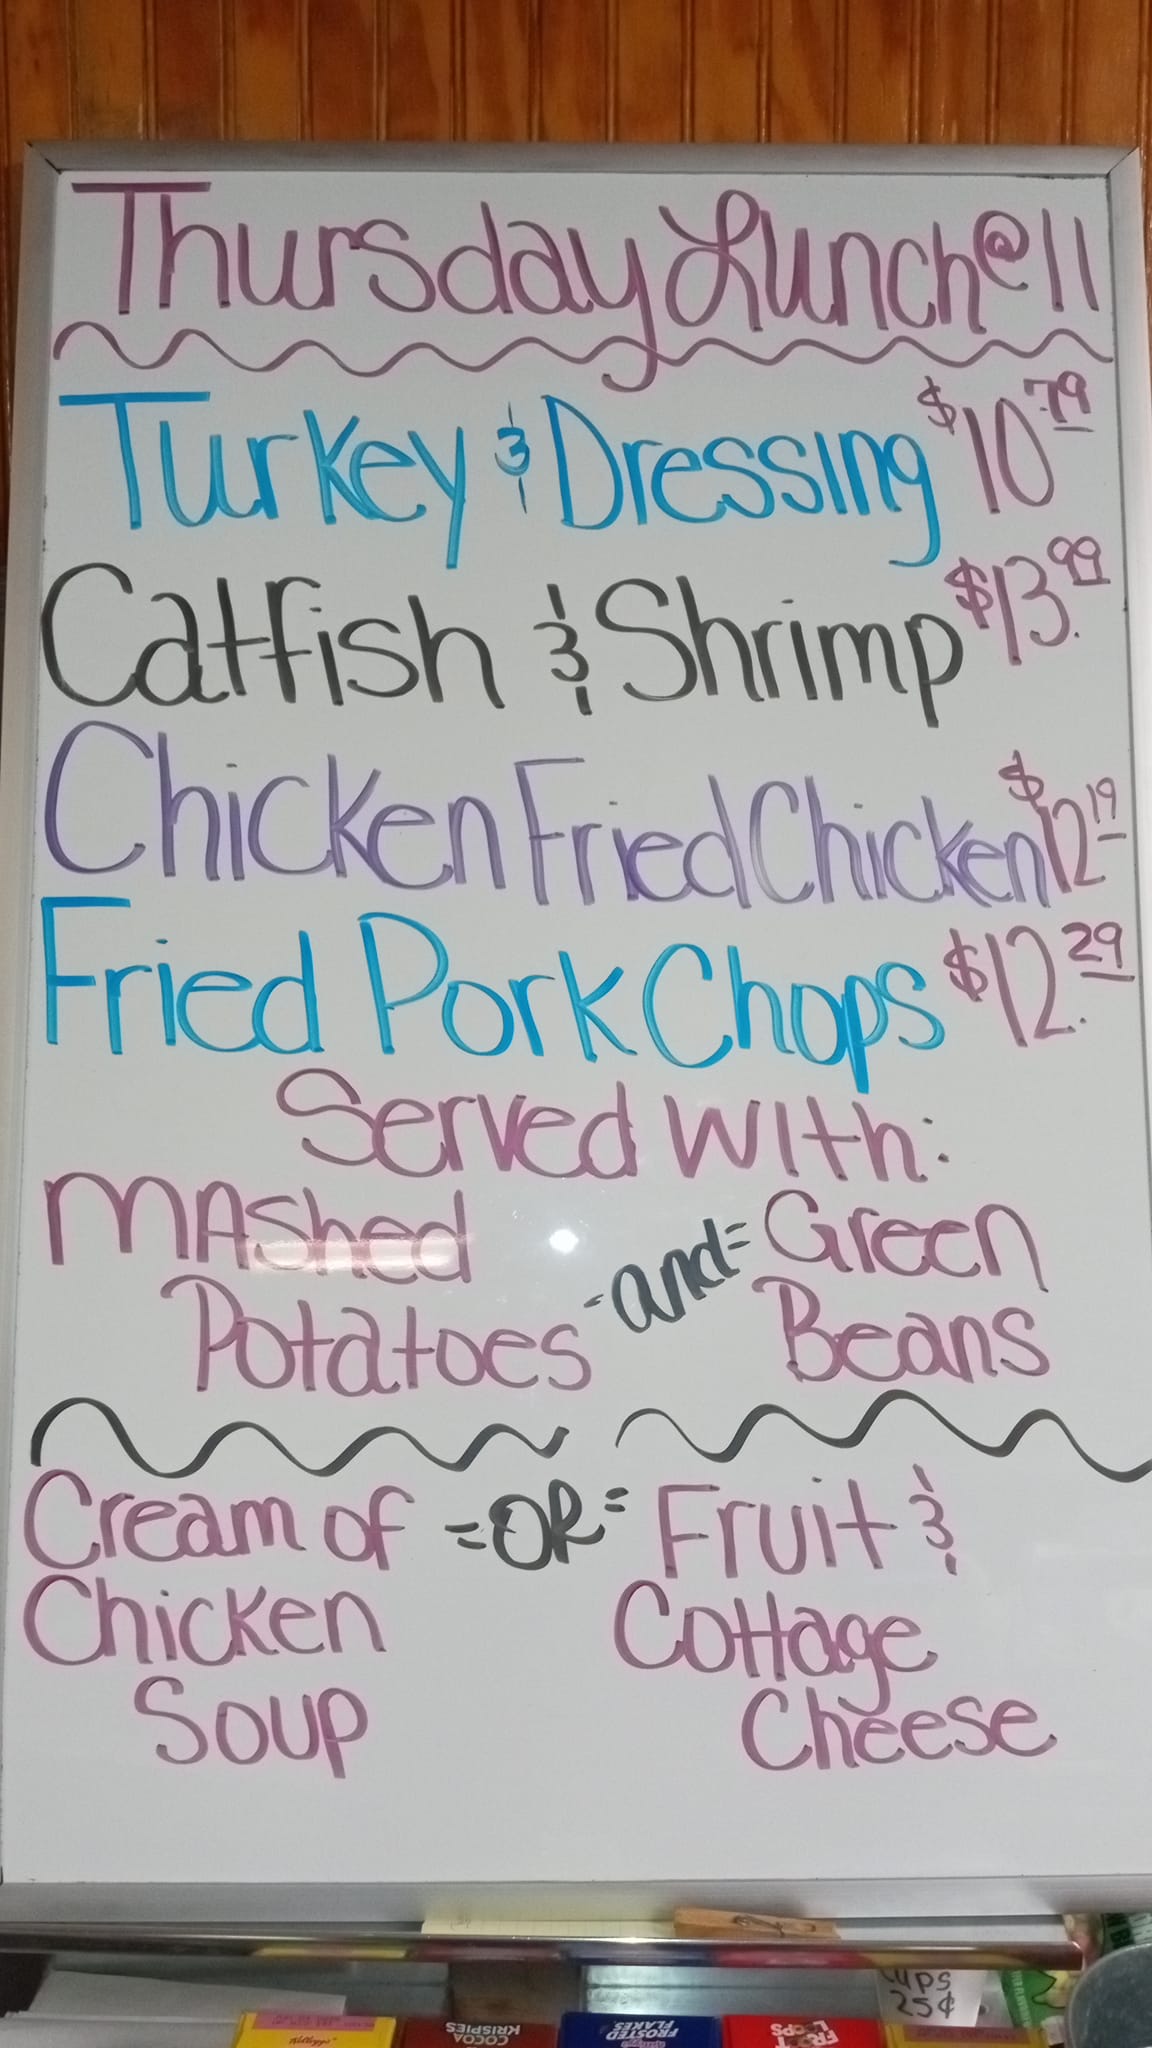 Thursday Lunch @ 11
Turkey & Dressing $10.79
Catfish & Shrimp $13.99
Chicken Fried Chicken $12.19
Fried Pork Chops $12.29
Served With:
MAShed -and= Green
Potatoes Beans
Cream of =OR= Fruit &
Chicken Cottage
Soup Cheese
Cups
25¢
Kellogg's
COCOA
KRISPIES
FROSTED
FLAKES
FROOT
LOOPS